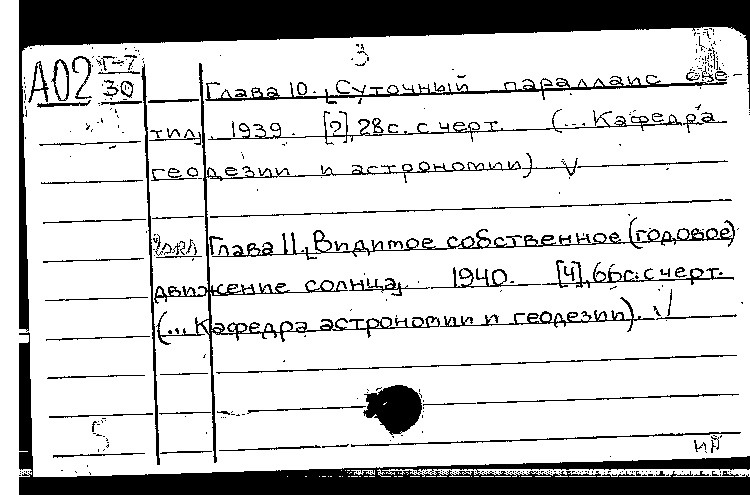 3
А02 Г-7
30
Глава 10. [Суточный параллакс све-
тил]. 1939. [2], 28с. с черт. (...Кафедра
геодезии и астрономии) V
Глава 11. [Видимое собственное (годовое)
движение солнца]. 1940. [4], 66с. с черт.
(... Кафедра астрономии и геодезии). V
5